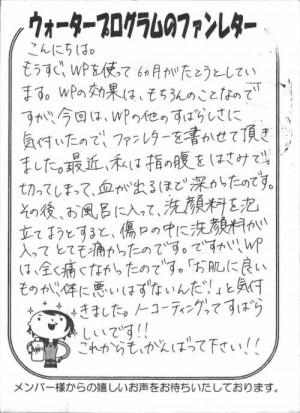 ウォータープログラムのファンレター
こんにちは。
もうすぐ、WPを使って6ヵ月がたとうとしてい
ます。WPの効果は、もちろんのことなので
すが、今回は、WPの他のすばらしさに
気付いたので、ファンレターを書かせて頂き
ました。最近、私は指の腹をはさみで、
切ってしまって、血が出るほど深かったのです。
その後、お風呂に入って、洗顔料を泡
立てようとすると、傷口の中に洗顔料が
入ってとても痛かったのです。ですが、WP
は、全く痛くなかったのです。「お肌に良い
ものが、体に悪いはずないんだ!」と気付
きました。ノーコーティングってすばら
しいです!!
これからも、がんばって下さい!!
メンバー様からの嬉しいお声をお待ちいたしております。